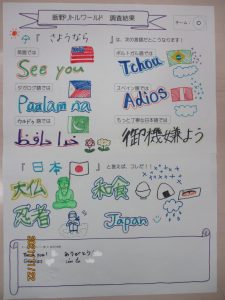 藤野リトルワールド 調査結果
チーム：○
『 さようなら 』は、次の言語だとこうなります！
英語では
ポルトガル語では
See you
Tchau
タガログ語では
スペイン語では
Paalam na
Adios
ウルドゥ語では
もっと丁寧な日本語では
خدا حافظ
御機嫌よう
『 日本 』と言えば、コレだ！！
大仏
和食
忍者
Japan
Thank you!
ありがとう